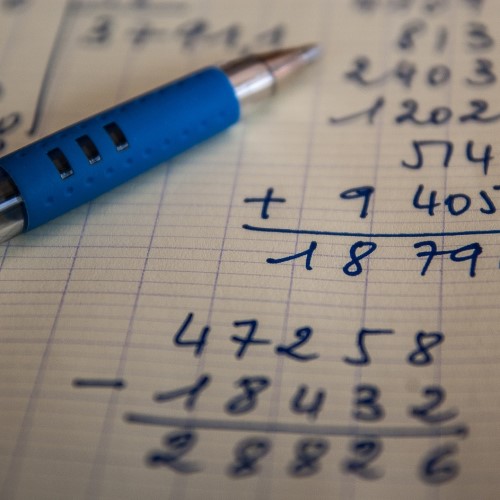 813
2403
1202
514
+ 9 405
18 79
47258
- 18432
28826